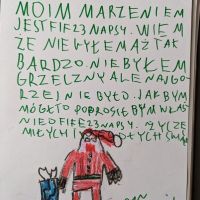 MOIM MARZENIEM
JEST FIFE 23 NA PS4. WIEM
ŻE NIE BYŁEM AŻ TAK
BARDZO. NIE BYŁEM
GRZECZNY ALE NAJGO
RZEJ NIE BYŁO. JAK BYM
MÓGŁ TO POPROSIŁ BYM WŁAŚ
NIE O FIFE 23 NA PS4. ŻYCZE
MIŁYCH I